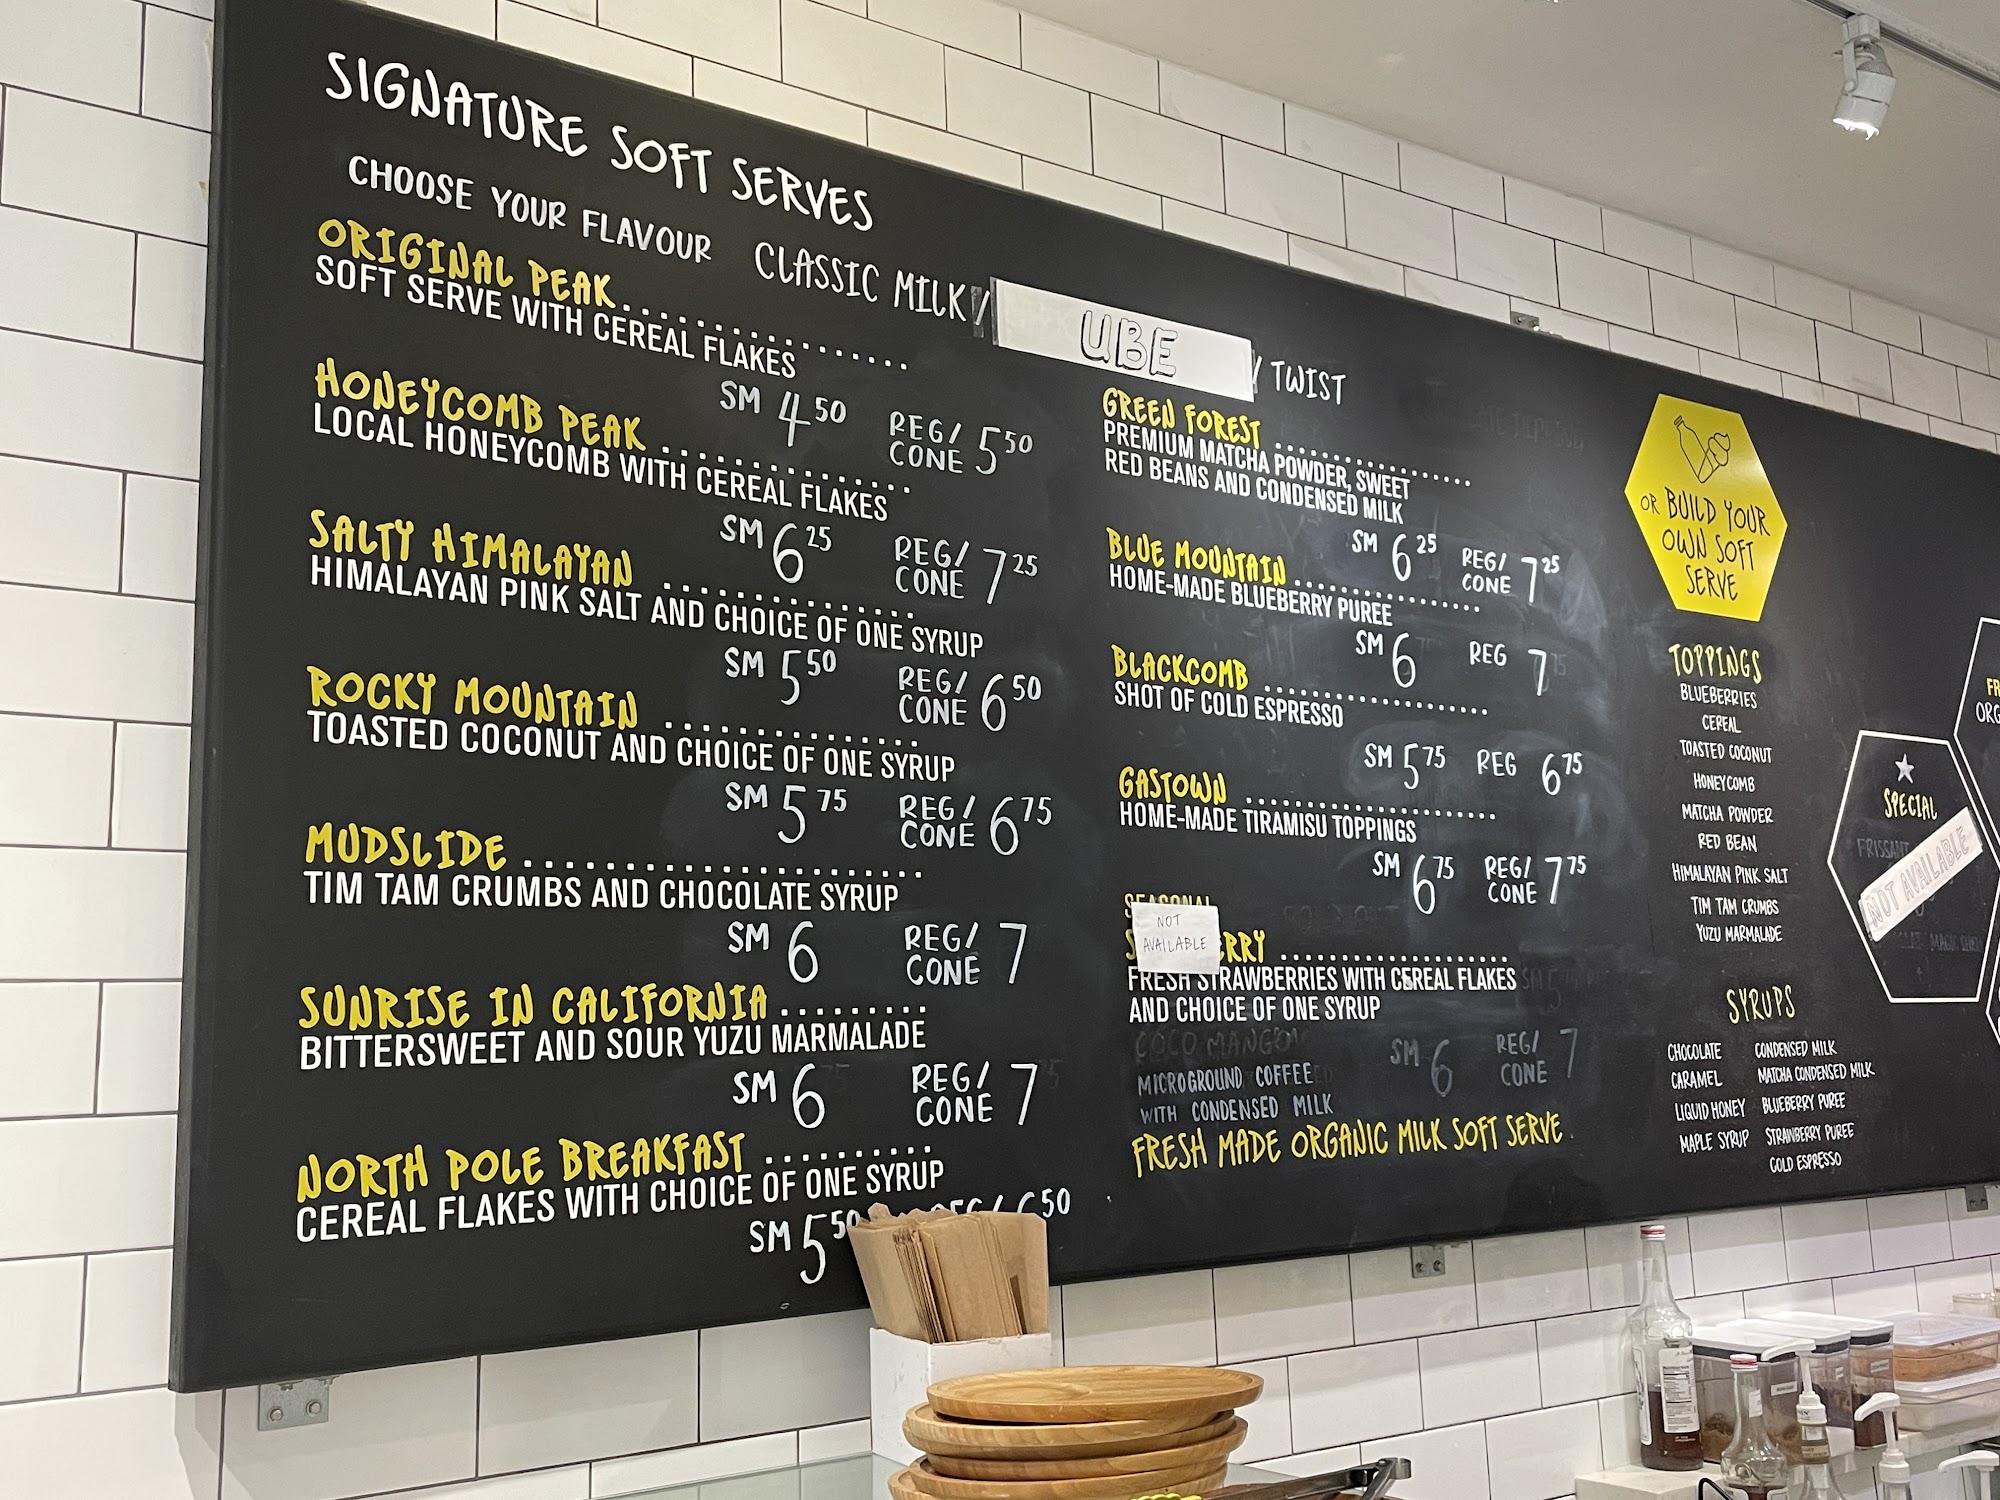 SIGNATURE SOFT SERVES
CHOOSE YOUR FLAVOUR CLASSIC MILK / UBE / TWIST
ORIGINAL PEAK................
SOFT SERVE WITH CEREAL FLAKES
SM 4.50 REG/CONE 5.50
HONEYCOMB PEAK..............
LOCAL HONEYCOMB WITH CEREAL FLAKES
SM 6.25 REG/CONE 7.25
SALTY HIMALAYAN..............
HIMALAYAN PINK SALT AND CHOICE OF ONE SYRUP
SM 5.50 REG/CONE 6.50
ROCKY MOUNTAIN..............
TOASTED COCONUT AND CHOICE OF ONE SYRUP
SM 5.75 REG/CONE 6.75
MUDSLIDE......................
TIM TAM CRUMBS AND CHOCOLATE SYRUP
SM 6 REG/CONE 7
SUNRISE IN CALIFORNIA.........
BITTERSWEET AND SOUR YUZU MARMALADE
SM 6 REG/CONE 7
NORTH POLE BREAKFAST..........
CEREAL FLAKES WITH CHOICE OF ONE SYRUP
SM 5.50 6.50
GREEN FOREST..................
PREMIUM MATCHA POWDER, SWEET
RED BEANS AND CONDENSED MILK
SM 6.25 REG/CONE 7.25
BLUE MOUNTAIN.................
HOME-MADE BLUEBERRY PUREE
SM 6 REG 7
BLACKCOMB....................
SHOT OF COLD ESPRESSO
SM 5.75 REG 6.75
GASTOWN.....................
HOME-MADE TIRAMISU TOPPINGS
SM 6.75 REG/CONE 7.75
SEASONAL
NOT
AVAILABLE
FRESH STRAWBERRIES WITH CEREAL FLAKES
AND CHOICE OF ONE SYRUP
COCO MANGO
SM 6 REG/CONE 7
MICROGROUND COFFEE
WITH CONDENSED MILK
FRESH MADE ORGANIC MILK SOFT SERVE.
OR BUILD YOUR
OWN SOFT
SERVE
TOPPINGS
BLUEBERRIES
CEREAL
TOASTED COCONUT
HONEYCOMB
MATCHA POWDER
RED BEAN
HIMALAYAN PINK SALT
TIM TAM CRUMBS
YUZU MARMALADE
SYRUPS
CHOCOLATE
CARAMEL
LIQUID HONEY
MAPLE SYRUP
CONDENSED MILK
MATCHA CONDENSED MILK
BLUEBERRY PUREE
STRAWBERRY PUREE
COLD ESPRESSO
SPECIAL
NOT AVAILABLE